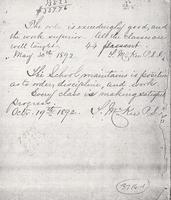 The order is exceedingly good, and
the work superior. All the classes are
well taught. 44 present.
May 30th 1892. J. McKee P.S.I.
The School maintains its position
as to order, discipline, and work.
Every class is making satisfact
progress.
Octr. 19th 1892. J. McKee P.S.I.